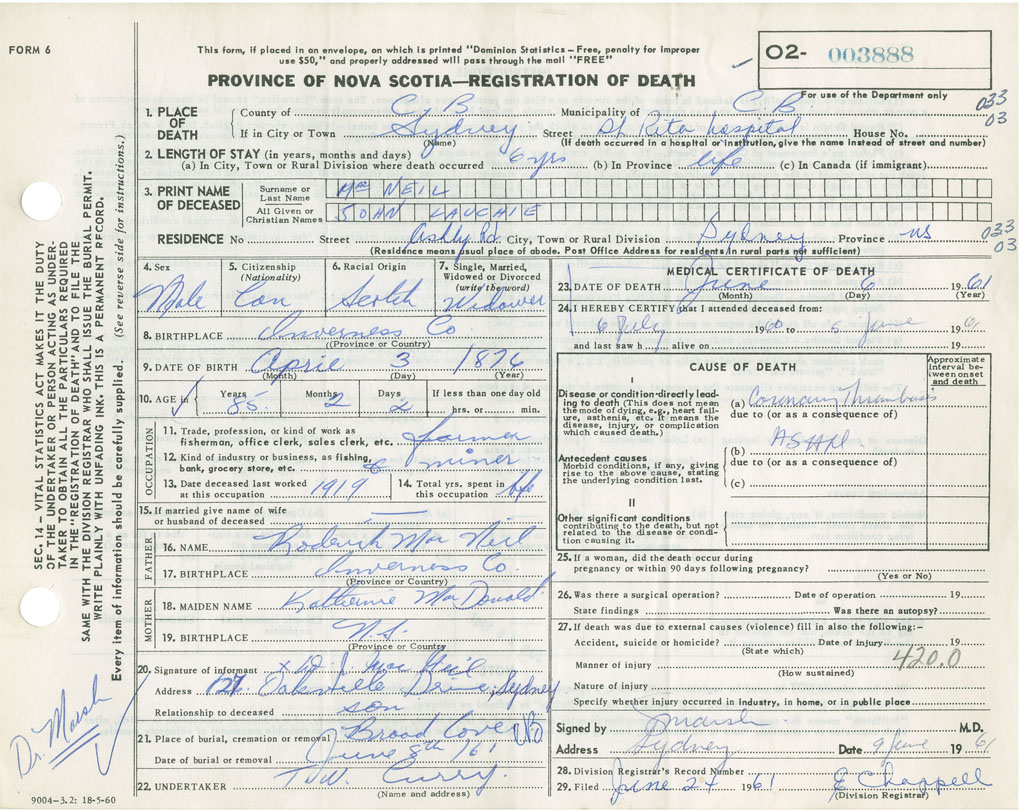 FORM 6
This form, if placed in an envelope, on which is printed "Dominion Statistics – Free, penalty for improper
use $50," and properly addressed will pass through the mail "FREE"
PROVINCE OF NOVA SCOTIA—REGISTRATION OF DEATH
O2- 003888
For use of the Department only
033
03
1. PLACE OF DEATH
County of C. B. Municipality of C B.
If in City or Town Sydney Street St Rita Hospital House No.
(Name) (If death occurred in a hospital or institution, give the name instead of street and number)
2. LENGTH OF STAY (in years, months and days)
(a) In City, Town or Rural Division where death occurred 6 yrs (b) In Province life (c) In Canada (if immigrant)
3. PRINT NAME OF DECEASED
Surname or Last Name Mac NEIL
All Given or Christian Names JOHN LAUCHIE
RESIDENCE No Street Ashby Rd. City, Town or Rural Division Sydney Province NS
033
03
(Residence means usual place of abode. Post Office Address for residents in rural parts not sufficient)
4. Sex Male
5. Citizenship (Nationality) Can
6. Racial Origin Scotch
7. Single, Married, Widowed or Divorced (write the word) Widower
8. BIRTHPLACE Inverness Co
(Province or Country)
9. DATE OF BIRTH April 3 1876
(Month) (Day) (Year)
10. AGE in Years 85 Months 2 Days 2 If less than one day old hrs. or min.
OCCUPATION
11. Trade, profession, or kind of work as fisherman, office clerk, sales clerk, etc. farmer
12. Kind of industry or business, as fishing, bank, grocery store, etc. & miner
13. Date deceased last worked at this occupation 1919
14. Total yrs. spent in this occupation life
15. If married give name of wife or husband of deceased
FATHER
16. NAME Roderick Mac Neil
17. BIRTHPLACE Inverness Co.
(Province or Country)
MOTHER
18. MAIDEN NAME Katherine MacDonald
19. BIRTHPLACE N.S.
(Province or Country)
20. Signature of informant x D. J. Mac Neil
Address 127 Oaksville Drive, Sydney
Relationship to deceased son
21. Place of burial, cremation or removal Broad Cove
Date of burial or removal June 8th '61
22. UNDERTAKER T. W. Curry
(Name and address)
9004–3.2: 18-5-60
MEDICAL CERTIFICATE OF DEATH
23. DATE OF DEATH June 6 1961
(Month) (Day) (Year)
24. I HEREBY CERTIFY that I attended deceased from:
6 July 1960 to 5 June 1961
and last saw h alive on 19
CAUSE OF DEATH
Approximate interval between onset and death
I
Disease or condition directly leading to death (This does not mean the mode of dying, e.g., heart failure, asthenia, etc. It means the disease, injury, or complication which caused death.)
(a) Coronary Thrombosis
due to (or as a consequence of)
ASHD
Antecedent causes
Morbid conditions, if any, giving rise to the above cause, stating the underlying condition last.
(b)
due to (or as a consequence of)
(c)
II
Other significant conditions
contributing to the death, but not related to the disease or condition causing it.
25. If a woman, did the death occur during pregnancy or within 90 days following pregnancy?
(Yes or No)
26. Was there a surgical operation? Date of operation 19
State findings Was there an autopsy?
27. If death was due to external causes (violence) fill in also the following:–
Accident, suicide or homicide? Date of injury 19
(State which)
420.0
Manner of injury
(How sustained)
Nature of injury
Specify whether injury occurred in industry, in home, or in public place
Signed by Marsh M.D.
Address Sydney Date 9 June 1961
28. Division Registrar's Record Number
29. Filed June 24 1961 E Chappell
(Division Registrar)
SEC. 14 – VITAL STATISTICS ACT MAKES IT THE DUTY
OF THE UNDERTAKER OR PERSON ACTING AS UNDER-
TAKER TO OBTAIN ALL THE PARTICULARS REQUIRED
IN THE "REGISTRATION OF DEATH" AND TO FILE THE
SAME WITH THE DIVISION REGISTRAR WHO SHALL ISSUE THE BURIAL PERMIT.
WRITE PLAINLY WITH UNFADING INK. THIS IS A PERMANENT RECORD.
Every item of information should be carefully supplied. (See reverse side for instructions.)
Dr. Marsh